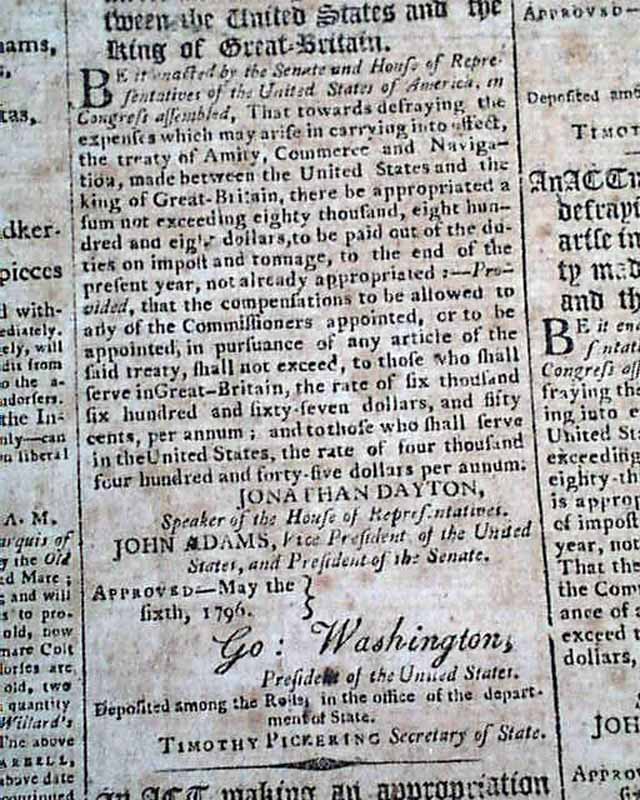 tween the United States and the
King of Great-Britain.
BE it enacted by the Senate and House of Repre-
sentatives of the United States of America, in
Congress assembled, That towards defraying the
expenses which may arise in carrying into effect,
the treaty of Amity, Commerce and Naviga-
tion, made between the United States and the
king of Great-Britain, there be appropriated a
sum not exceeding eighty thousand, eight hun-
dred and eight dollars, to be paid out of the du-
ties on impost and tonnage, to the end of the
present year, not already appropriated :—Pro-
vided, that the compensations to be allowed to
any of the Commissioners appointed, or to be
appointed, in pursuance of any article of the
said treaty, shall not exceed, to those who shall
serve in Great-Britain, the rate of six thousand
six hundred and sixty-seven dollars, and fifty
cents, per annum ; and to those who shall serve
in the United States, the rate of four thousand
four hundred and forty-five dollars per annum.
JONATHAN DAYTON,
Speaker of the House of Representatives.
JOHN ADAMS, Vice President of the United
States, and President of the Senate.
APPROVED—May the
sixth, 1796.
Go: Washington,
President of the United States.
Deposited among the Rolls, in the office of the depart-
ment of State.
TIMOTHY PICKERING Secretary of State.
An ACT making an appropriation
dker-
pieces
d with-
ediately.
ely, will
dit from
o the a-
ndorsers.
the In-
nly—can
n liberal
A. M.
arquis of
y the Old
ed Mare ;
and will
s to pro-
old, now
mare Colt
lories are
old, two
quantity
Willard's
The above
ARBELL,
above date
continued
APPROVED—
Deposited amo
TIMOT
An ACT
defrayi
arise in
ty mad
and th
BE it en
sentati
Congress ass
fraying the
ing into e
United Sta
exceeding
eighty-th
is approp
of impost
year, not
That the
the Com
ance of a
exceed
dollars,
JOH
APPROV